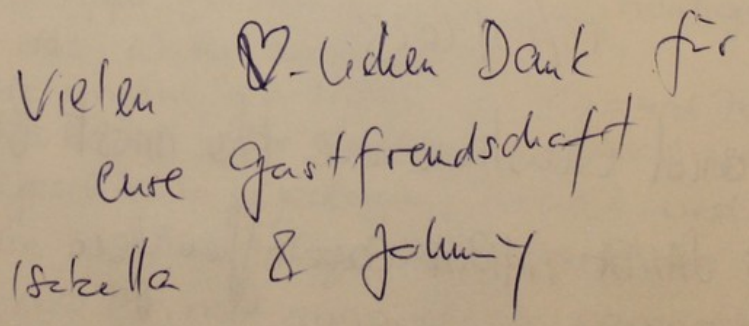 Vielen ♡-lichen Dank für
eure Gastfreundschaft
Isabella & Johnny